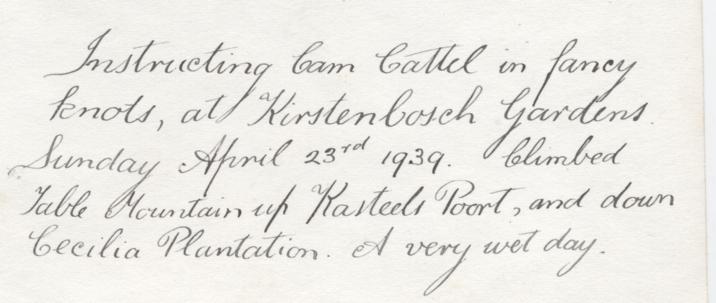 Instructing Cam Cattel in fancy
knots, at Kirstenbosch Gardens.
Sunday April 23rd 1939. Climbed
Table Mountain up Kasteels Poort, and down
Cecilia Plantation. A very wet day.